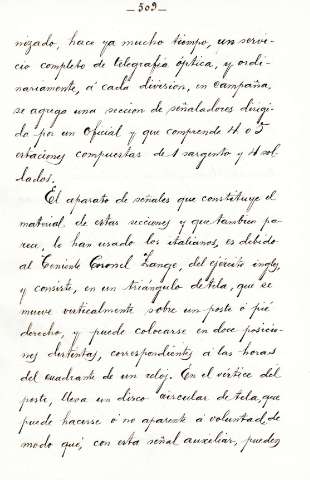 —309—
nizado, hace ya mucho tiempo, un servi-
cio completo de telegrafía óptica, y ordi-
nariamente, á cada división, en campaña,
se agrega una seccion de señaladores dirigi-
do por un Oficial y que comprende 4 o 5
estaciones compuestas de 1 sargento y 4 sol-
dados.
El aparato de señales que constituye el
material de estas secciones y que tambien pa-
rece, le han usado los italianos, es debido
al Teniente Coronel Lange, del ejército inglés,
y consiste, en un triángulo de tela, que se
mueve verticalmente sobre un poste ó pié
derecho, y puede colocarse en doce posicio-
nes distintas, correspondientes á las horas
del cuadrante de un reloj. En el vértice del
poste, lleva un disco circular de tela, que
puede hacerse ó no aparente á voluntad, de
modo qué, con esta señal auxiliar, pueden